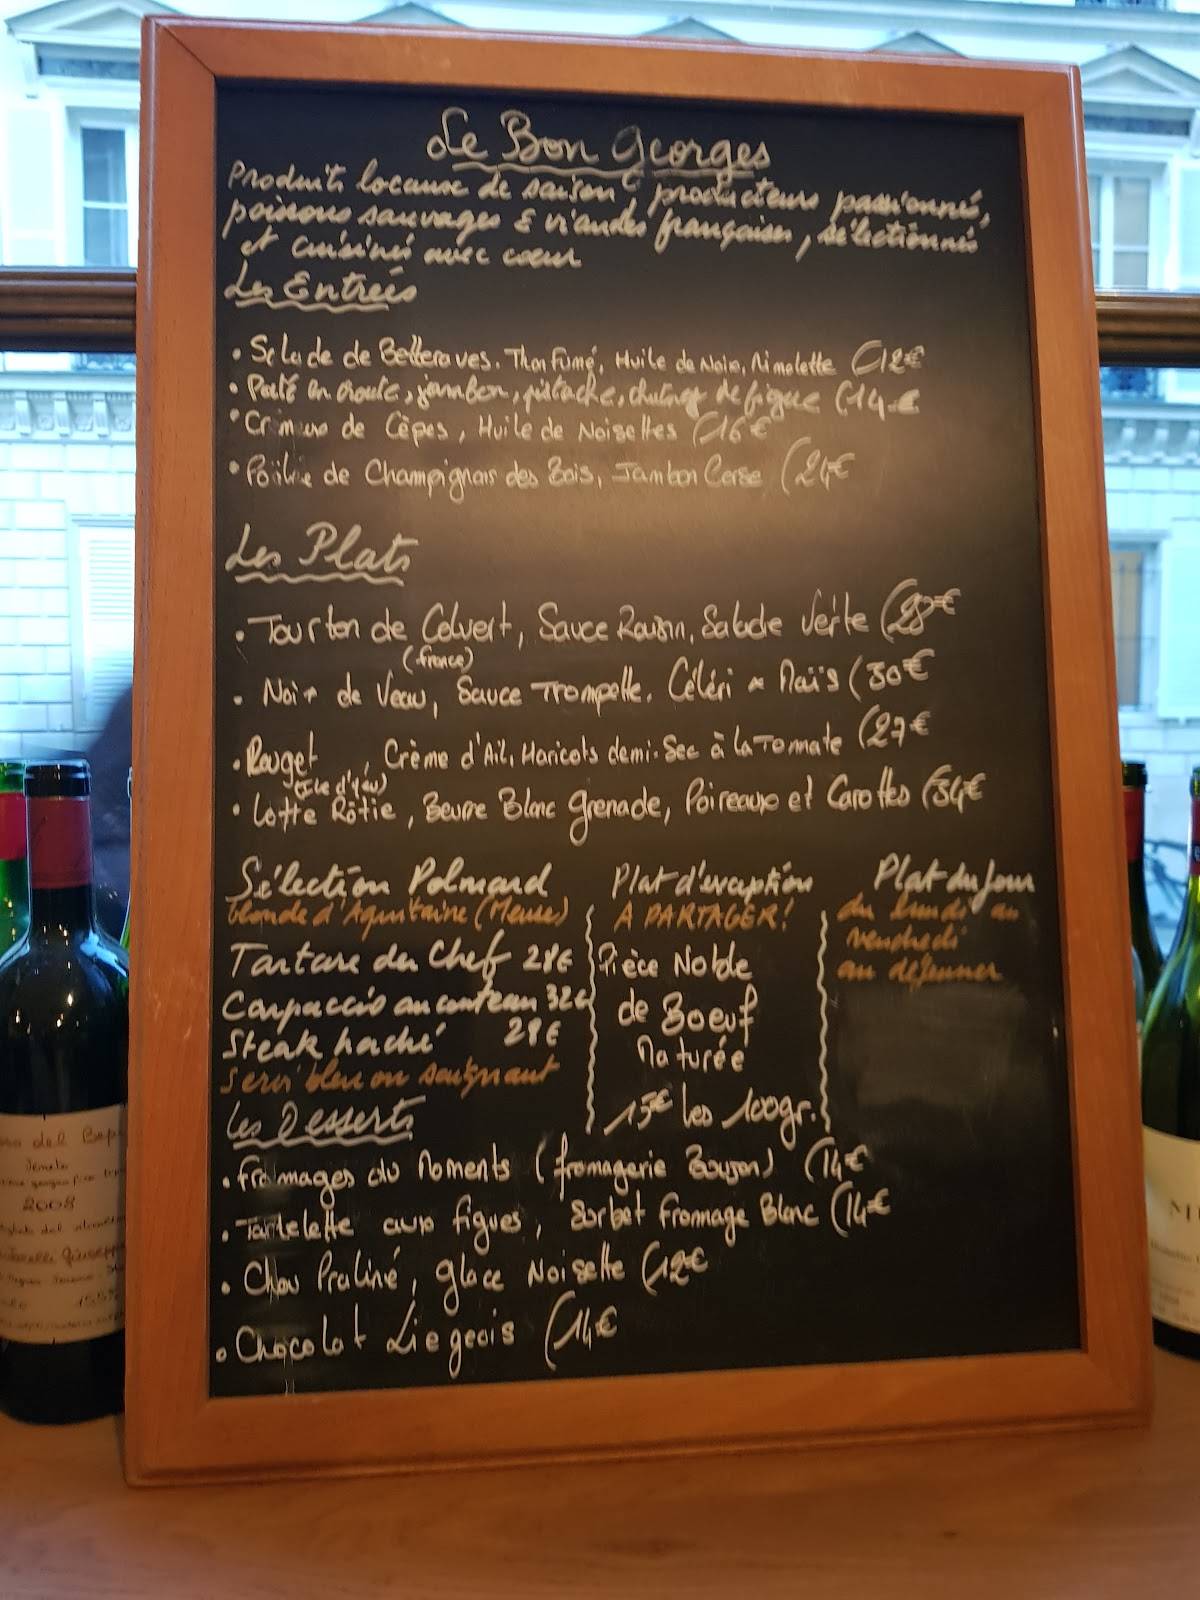 Le Bon Georges
Produits locaux de saison, producteurs passionnés,
poissons sauvages & viandes françaises, sélectionnés
et cuisinés avec coeur
Les Entrées
• Salade de Betteraves. Thon Fumé, Huile de Noix, Mimolette (12€
• Paté en croute, jambon, pistache, chutney de figue (14€
• Crémeux de Cêpes, Huile de Noisettes (16€
• Poêlée de Champignons des Bois, Jambon Corse (24€
Les Plats
• Tourton de Colvert, Sauce Raisin, Salade Verte (28€
(France)
• Noix de Veau, Sauce Trompette. Céléri & Maïs (30€
• Rouget, Crème d'Ail, Haricots demi-Sec à la Tomate (27€
(Île d'Yeu)
• Lotte Rôtie, Beurre Blanc Grenade, Poireaux et Carottes (34€
Sélection Polmard
blonde d'Aquitaine (Meuse)
Tartare du Chef 28€
Carpaccio au couteau 32€
Steak haché 28€
Servi bleu ou saignant
Plat d'exception
A PARTAGER!
Pièce Noble
de Boeuf
Maturée
15€ les 100gr.
Plat du Jour
du lundi au
vendredi
au déjeuner
Les Desserts
• Fromages du Moments (fromagerie) (14€
• Tartelette aux figues, Sorbet Fromage Blanc (14€
• Chou Praliné, glace Noisette (12€
• Chocolat Liegeois (14€
2008